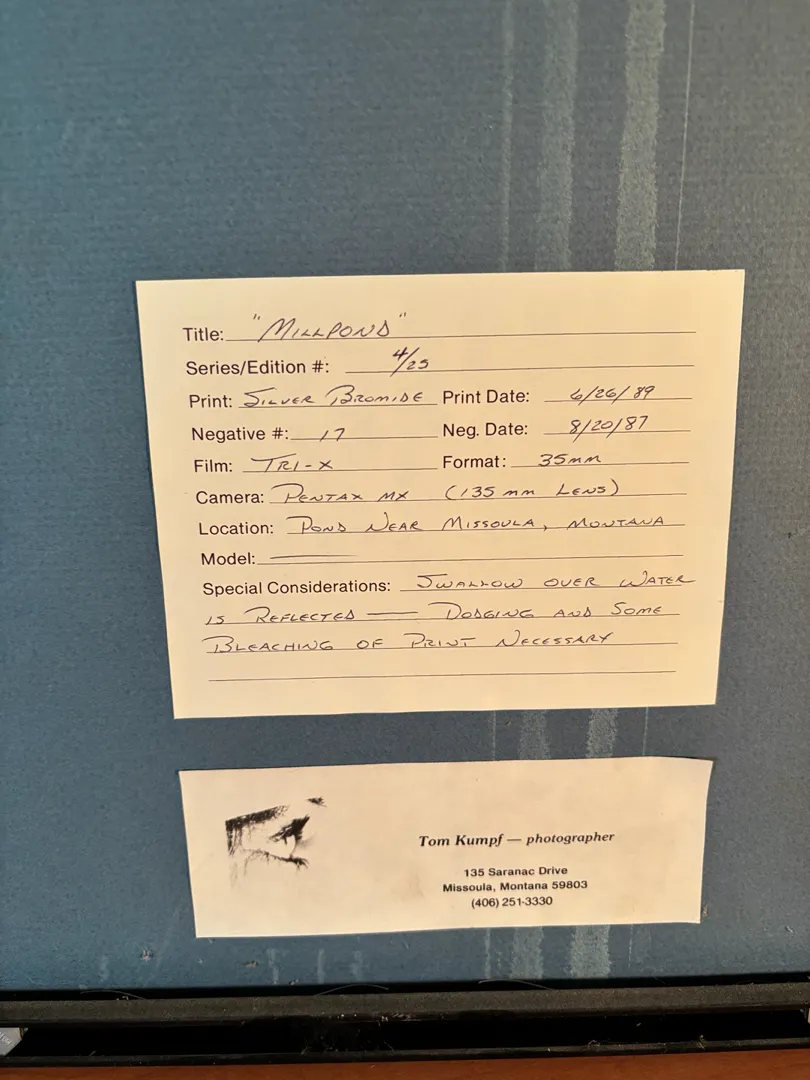 Title: "Millpond"
Series/Edition #: 4/25
Print: Silver Bromide Print Date: 6/26/89
Negative #: 17 Neg. Date: 8/20/87
Film: Tri-X Format: 35mm
Camera: Pentax MX (135 mm Lens)
Location: Pond Near Missoula, Montana
Model: —
Special Considerations: Swallow over Water
is Reflected — Dodging and Some
Bleaching of Print Necessary
Tom Kumpf — photographer
135 Saranac Drive
Missoula, Montana 59803
(406) 251-3330